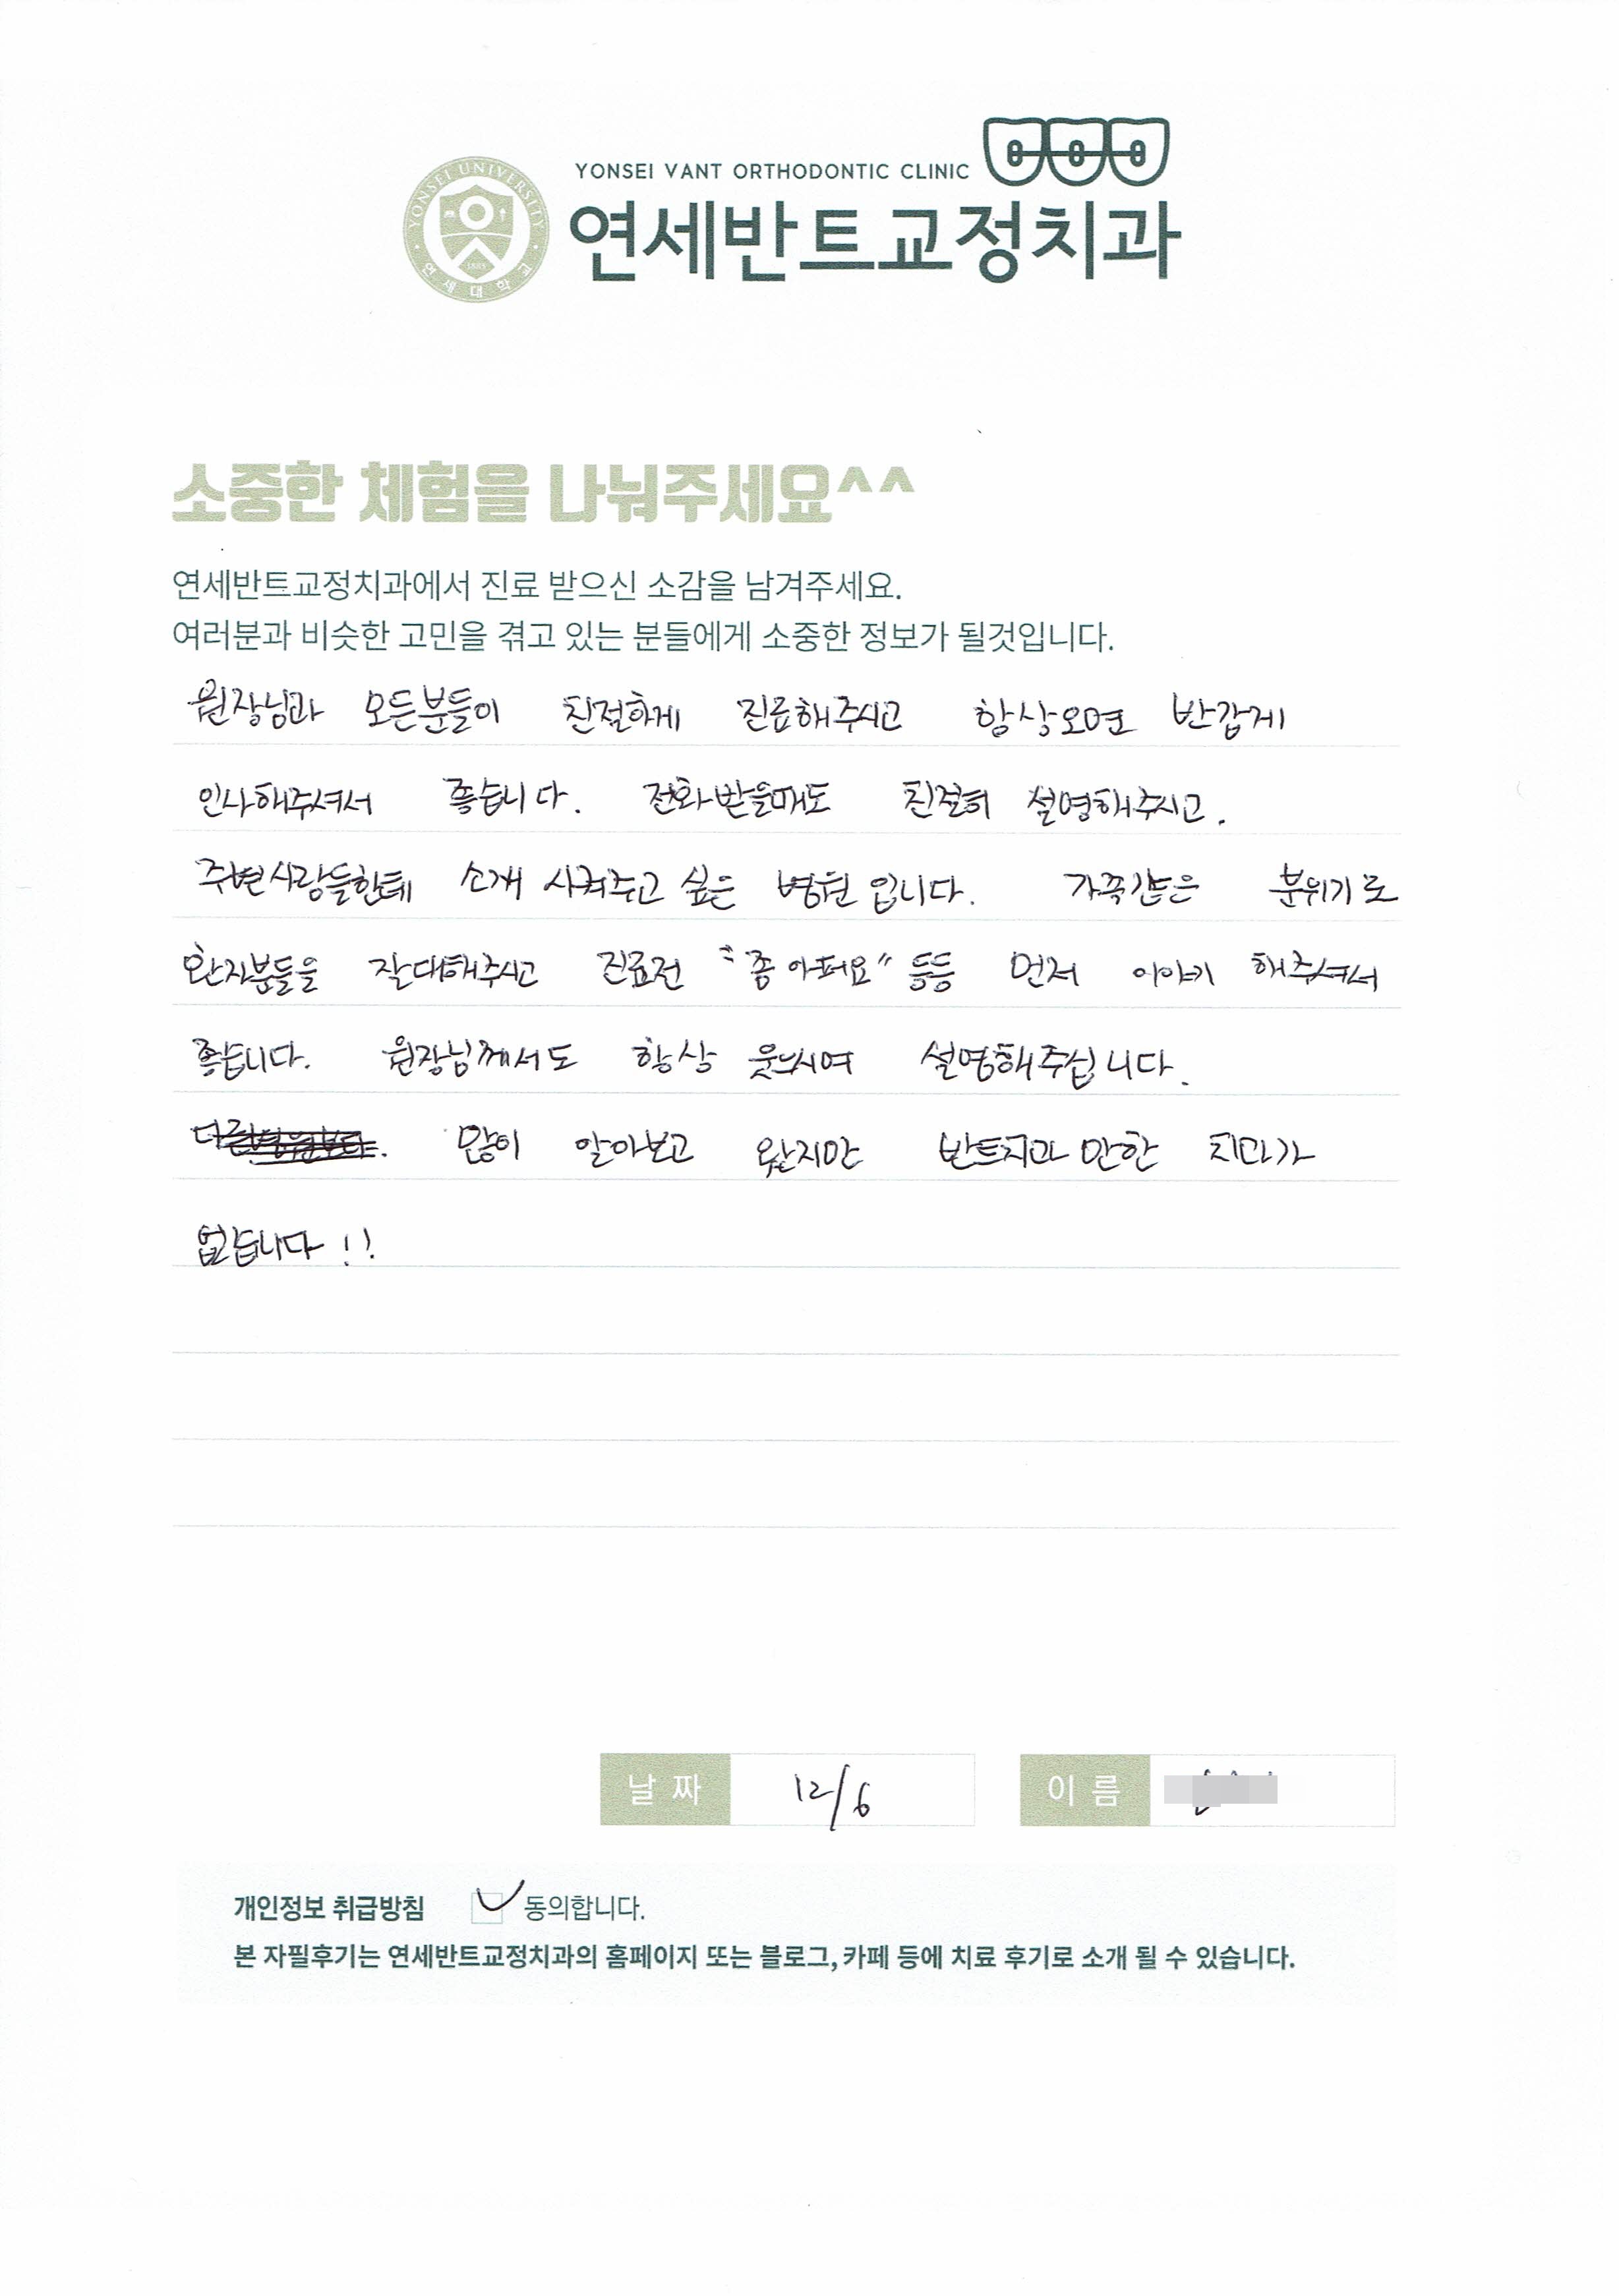 YONSEI VANT ORTHODONTIC CLINIC
연세반트교정치과
YONSEI UNIVERSITY
1885
연세대학교
소중한 체험을 나눠주세요^^
연세반트교정치과에서 진료 받으신 소감을 남겨주세요.
여러분과 비슷한 고민을 겪고 있는 분들에게 소중한 정보가 될것입니다.
원장님과 모든분들이 친절하게 진료해주시고 항상오면 반갑게
인사해주셔서 좋습니다. 전화받을때도 친절히 설명해주시고.
주변사람들한테 소개 시켜주고 싶은 병원 입니다. 가족같은 분위기로
환자분들을 잘대해주시고 진료전 "좀 아퍼요" 등등 먼저 이야기 해주셔서
좋습니다. 원장님께서도 항상 웃으시며 설명해주십니다.
많이 알아보고 왔지만 반트치과 만한 치과가
없습니다!!
날짜 12/6 이름
개인정보 취급방침 동의합니다.
본 자필후기는 연세반트교정치과의 홈페이지 또는 블로그, 카페 등에 치료 후기로 소개 될 수 있습니다.